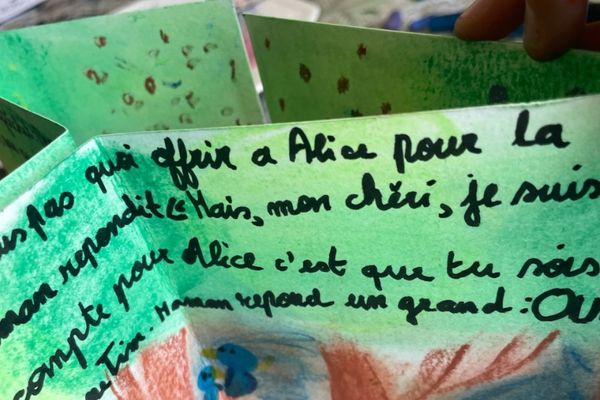 pas quoi offrir a Alice pour la
repondit « Mais, mon chéri, je suis
compte pour Alice c'est que tu sois
Tin. Maman repond un grand : OU